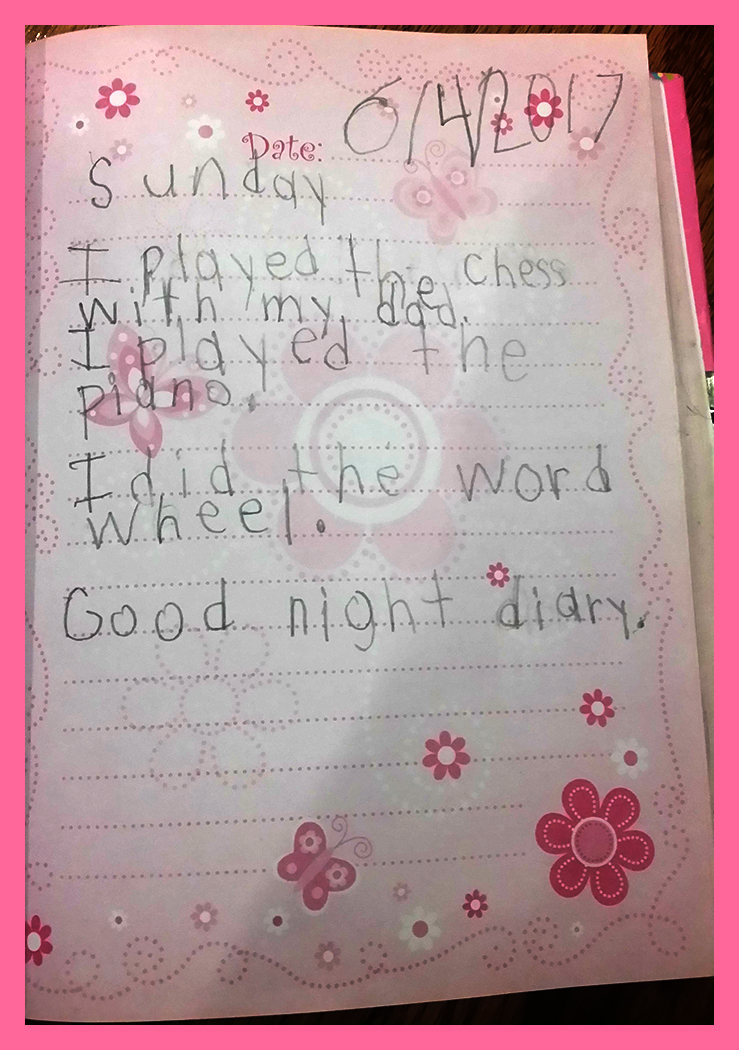 Date: 6/4/2017
Sunday
I played the chess
with my dad.
I played the
piano.
I did the word
wheel.
Good night diary.